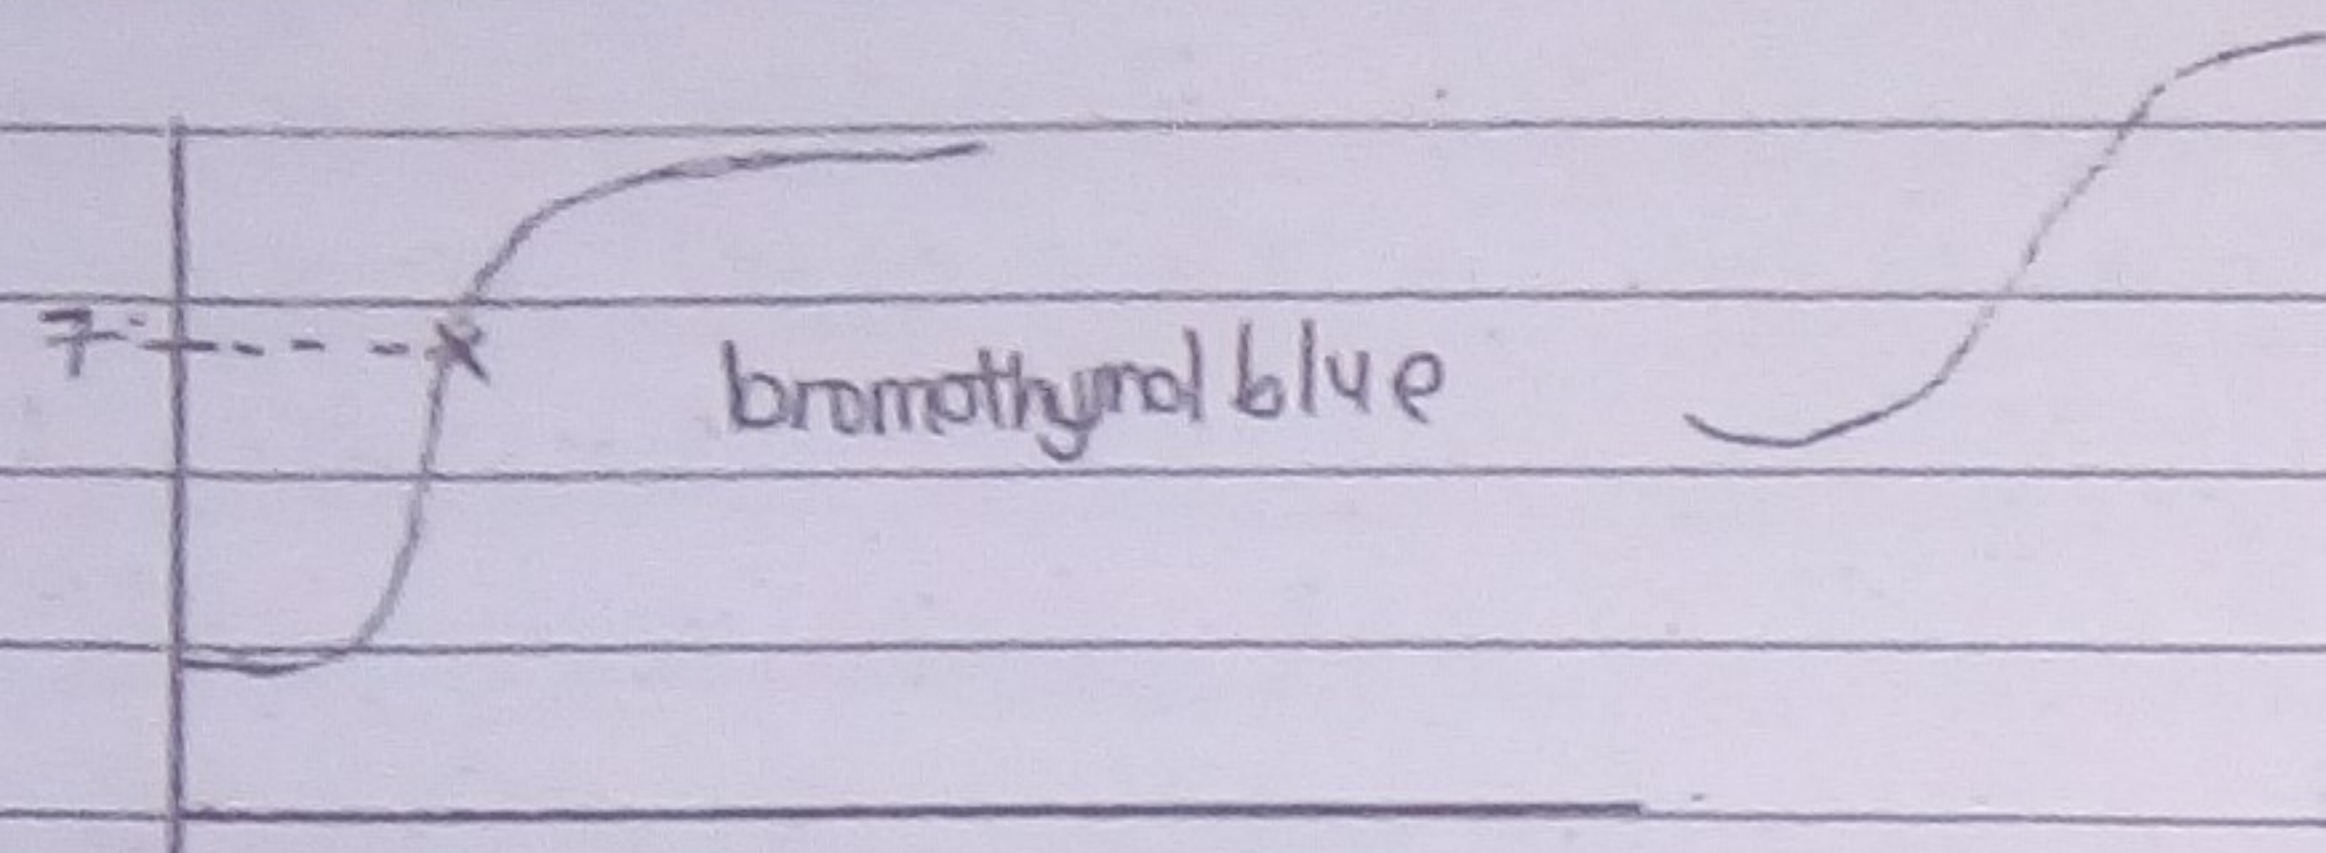 7
bromothymol blue